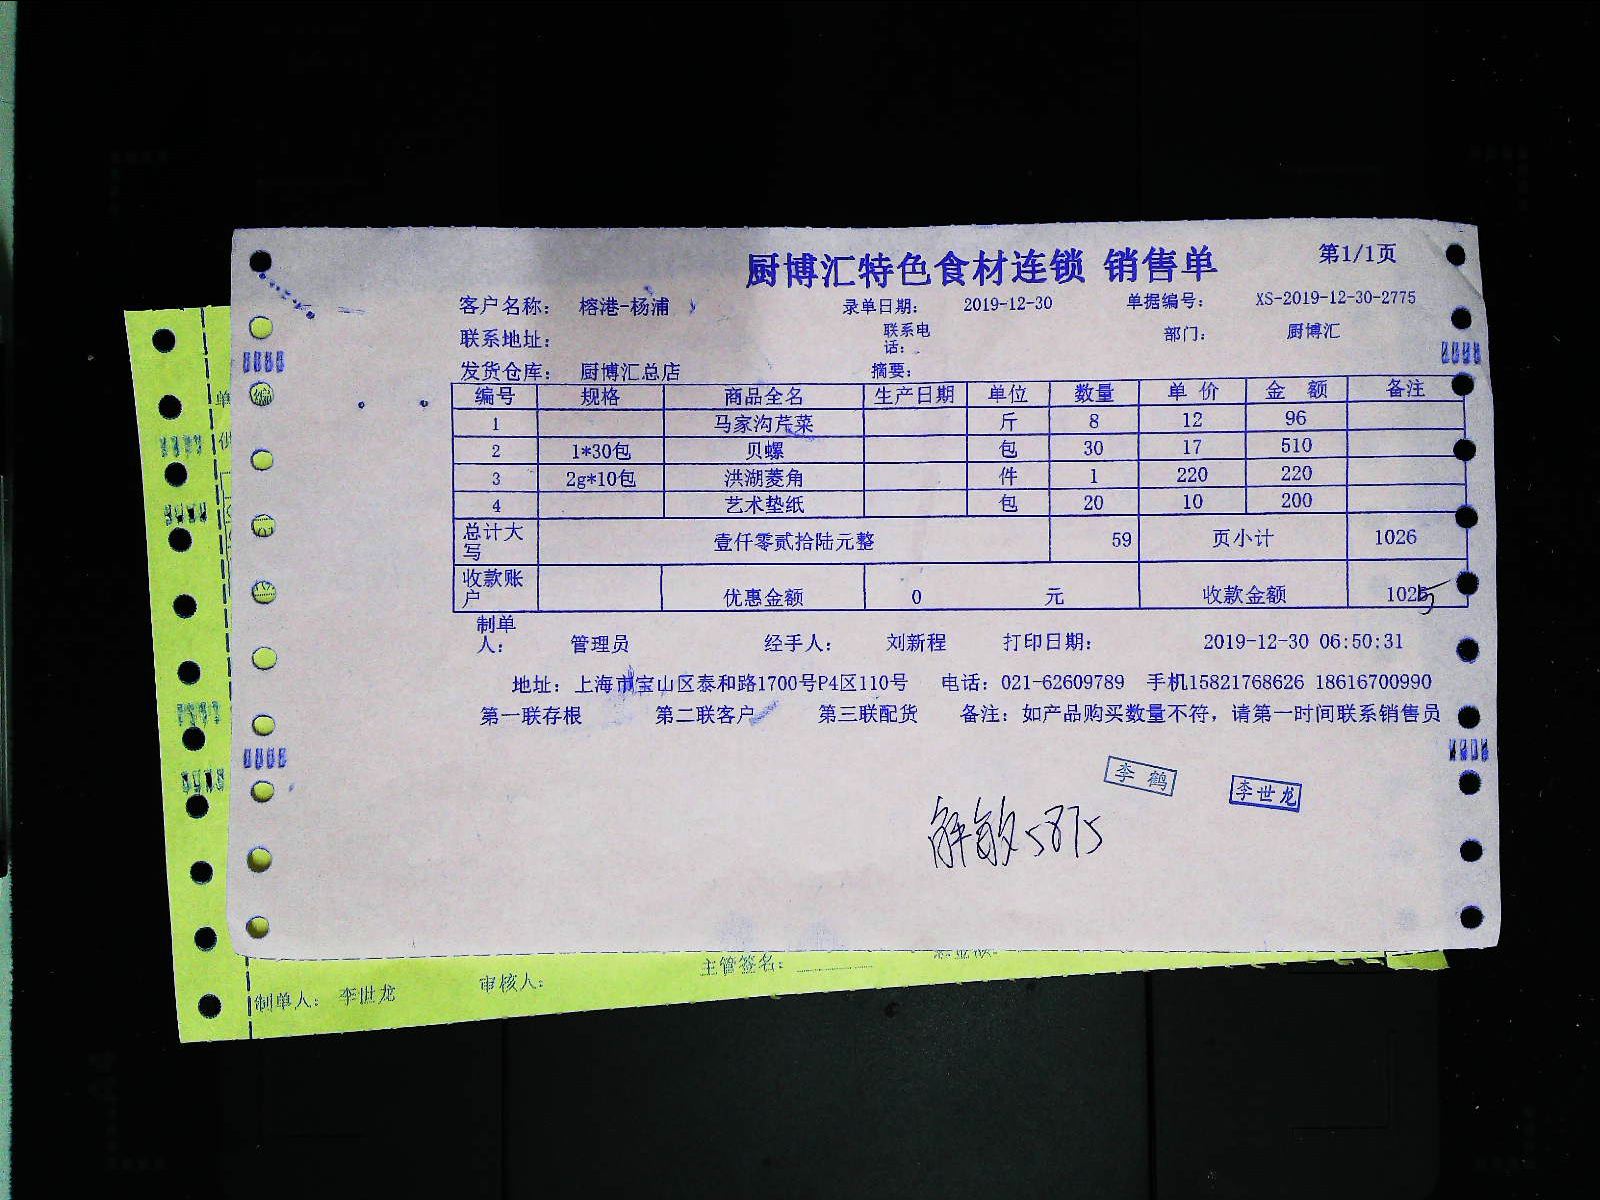 厨博汇特色食材连锁 销售单 第1/1页
客户名称： 榕港-杨浦 录单日期： 2019-12-30 单据编号： XS-2019-12-30-2775
联系地址： 联系电话： 部门： 厨博汇
发货仓库： 厨博汇总店 摘要：
编号 规格 商品全名 生产日期 单位 数量 单 价 金 额 备注
1 马家沟芹菜 斤 8 12 96
2 1*30包 贝螺 包 30 17 510
3 2g*10包 洪湖菱角 件 1 220 220
4 艺术垫纸 包 20 10 200
总计大写 壹仟零贰拾陆元整 59 页小计 1026
收款账户 优惠金额 0 元 收款金额 1025
制单人： 管理员 经手人： 刘新程 打印日期： 2019-12-30 06:50:31
地址：上海市宝山区泰和路1700号P4区110号 电话：021-62609789 手机15821768626 18616700990
第一联存根 第二联客户 第三联配货 备注：如产品购买数量不符，请第一时间联系销售员
李鹤 李世龙
解敏 5875
制单人： 李世龙 审核人： 主管签名：